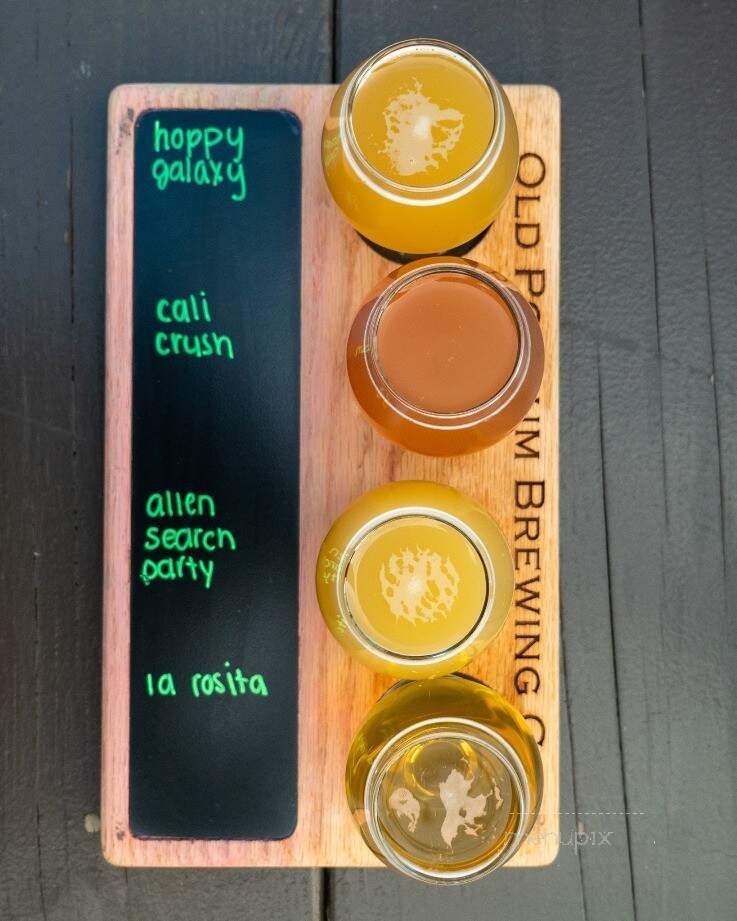 hoppy
galaxy
cali
crush
allen
search
party
la rosita
OLD BREWING
menupix